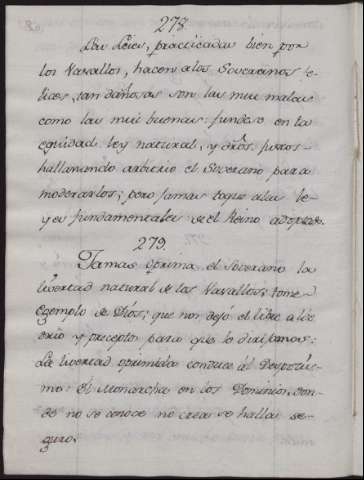 278.
Las Leies, practicadas bien por
los Vasallos, hacen a los Soveranos fe-
lices, tan dañosas son las mui malas
como las mui buenas: fundese en la
equidad ley natural, y dros. puros
hallanando arbitrio el Soverano para
moderarlos; pero jamas toque a las le-
yes fundamentales de el Reino adoptado.
279.
Jamas oprima el Soverano la
livertad natural de los Vasallos; tome
exemplo de Dios; que nos dejó el libre alve-
drio y preceptos para que lo dirijamos:
La livertad oprimida conduce al Despotis-
mo: el Monarcha en los Dominios don-
de no se conoce no crea se halla se-
guro.